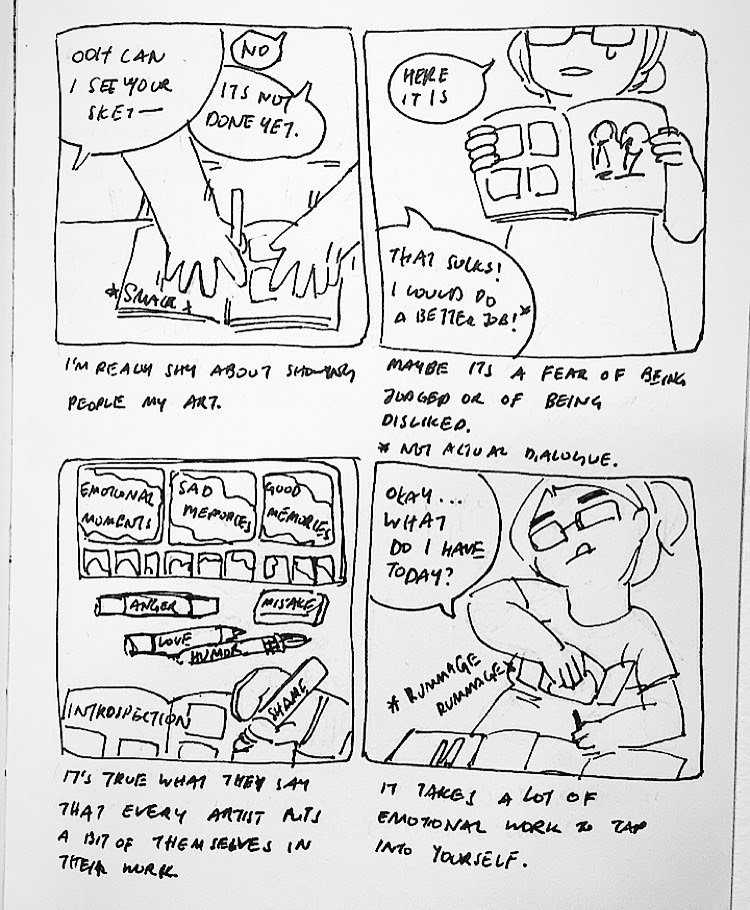 OOH CAN
I SEE YOUR
SKET—
NO
ITS NOT
DONE YET.
*SMACK*
I'M REALLY SHY ABOUT SHOWING
PEOPLE MY ART.
HERE
IT IS
THAT SUCKS!
I COULD DO
A BETTER JOB!*
MAYBE ITS A FEAR OF BEING
JUDGED OR OF BEING
DISLIKED.
* NOT ACTUAL DIALOGUE.
EMOTIONAL
MOMENTS
SAD
MEMORIES
GOOD
MEMORIES
ANGER
MISTAKE
LOVE
HUMOR
SHAME
INTROSPECTION
IT'S TRUE WHAT THEY SAY
THAT EVERY ARTIST PUTS
A BIT OF THEMSELVES IN
THEIR WORK.
OKAY...
WHAT
DO I HAVE
TODAY?
*RUMMAGE
RUMMAGE*
IT TAKES A LOT OF
EMOTIONAL WORK TO TAP
INTO YOURSELF.